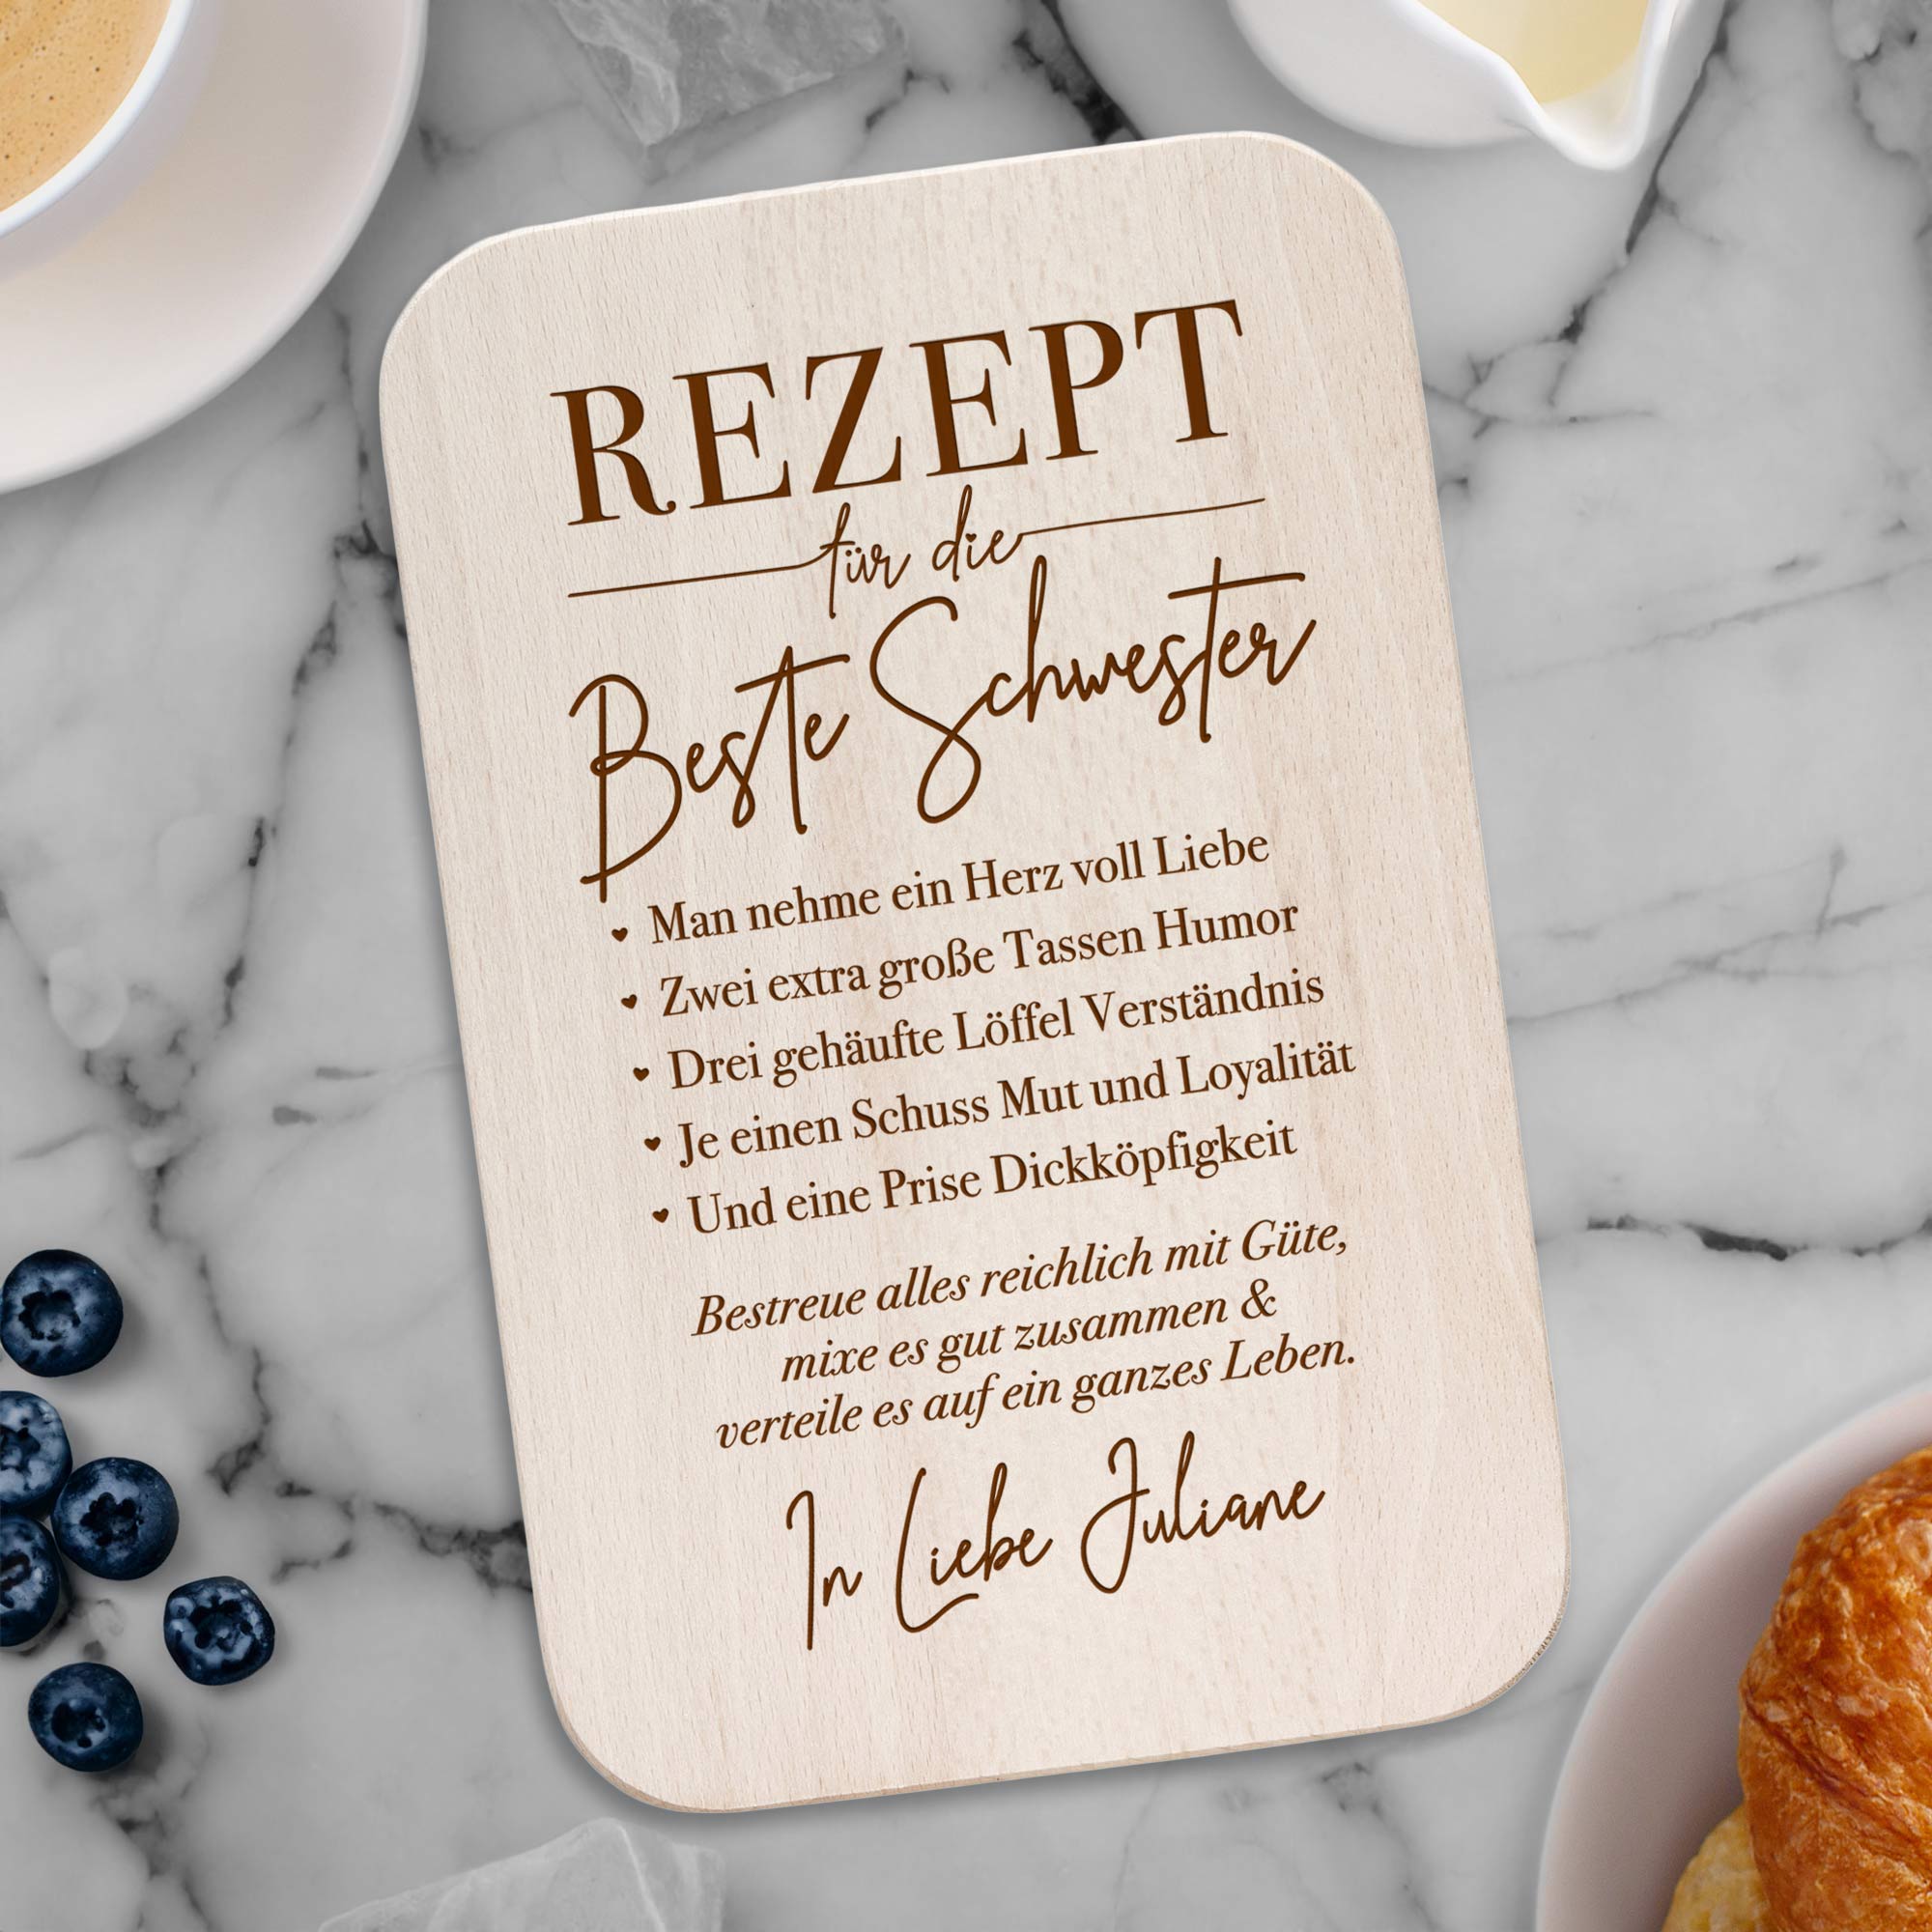 REZEPT
für die
Beste Schwester
Man nehme ein Herz voll Liebe
Zwei extra große Tassen Humor
Drei gehäufte Löffel Verständnis
Je einen Schuss Mut und Loyalität
Und eine Prise Dickköpfigkeit
Bestreue alles reichlich mit Güte,
mixe es gut zusammen &
verteile es auf ein ganzes Leben.
In Liebe Juliane